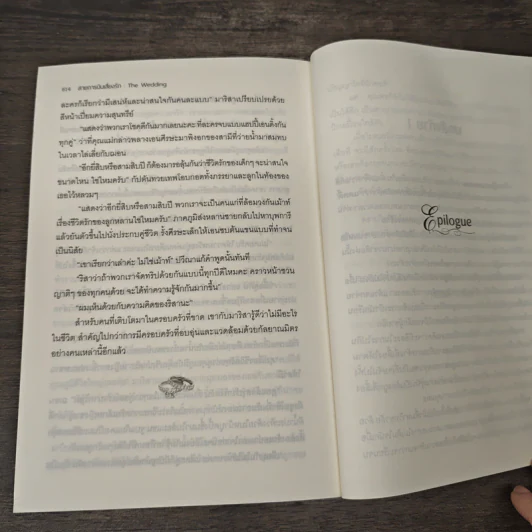 สายการบินเสี่ยงรัก : The Wedding
ละครก็เรียกว่ามีเสน่ห์และน่าสนใจกันคนละแบบ" มาริสาเปรียบเปรยด้วย
สีหน้าเปี่ยมความสุนทรีย์
"แสดงว่าพวกเราโชคดีกันมากเลยนะคะที่ละครจบแบบแฮปปี้เอนดิ้งกัน
ทุกคู่" ว่าที่คุณแม่กล่าวพลางเอนศีรษะมาพิงอกของสามีที่ว่ายน้ำมาสมทบ
ในเวลาไล่เลี่ยกับฌอน
"อีกยี่สิบหรือสามสิบปี ก็ต้องมารอลุ้นกันว่าชีวิตรักของเด็กๆ จะน่าสนใจ
ขนาดไหน ใช่ไหมครับ" กัปตันทวยเทพโอบกอดทั้งภรรยาและลูกในท้องของ
เธอไว้หลวมๆ
"แสดงว่าอีกยี่สิบหรือสามสิบปี พวกเราจะเป็นคนแก่ที่ล้อมวงกันเม้าท์
เรื่องชีวิตรักของลูกหลานใช่ไหมครับ" ภาคภูมิส่งหลานชายกลับไปหาบุพการี
แล้วยันตัวขึ้นไปนั่งประกบคู่ชีวิต รั้งศีรษะเล็กให้เอนซบต้นแขนแบบที่ทำจน
เป็นนิสัย
"เขาเรียกว่าเล่าค่ะ ไม่ใช่เม้าท์" ปวีณาแก้คำพูดนั้นทันที
"ริสาว่าถ้าพวกเราจัดทริปด้วยกันแบบนี้ทุกปีดีไหมคะ คราวหน้าชวน
ญาติๆ ของทุกคนด้วย จะได้ทำความรู้จักกันมากขึ้น"
"ผมเห็นด้วยกับความคิดของริสานะ"
สำหรับคนที่เติบโตมาในครอบครัวที่ขาด เขากับมาริสารู้ดีว่าไม่มีอะไร
ในชีวิต สำคัญไปกว่าการมีครอบครัวที่อบอุ่นและแวดล้อมด้วยกัลยาณมิตร
อย่างคนเหล่านี้อีกแล้ว
Epilogue